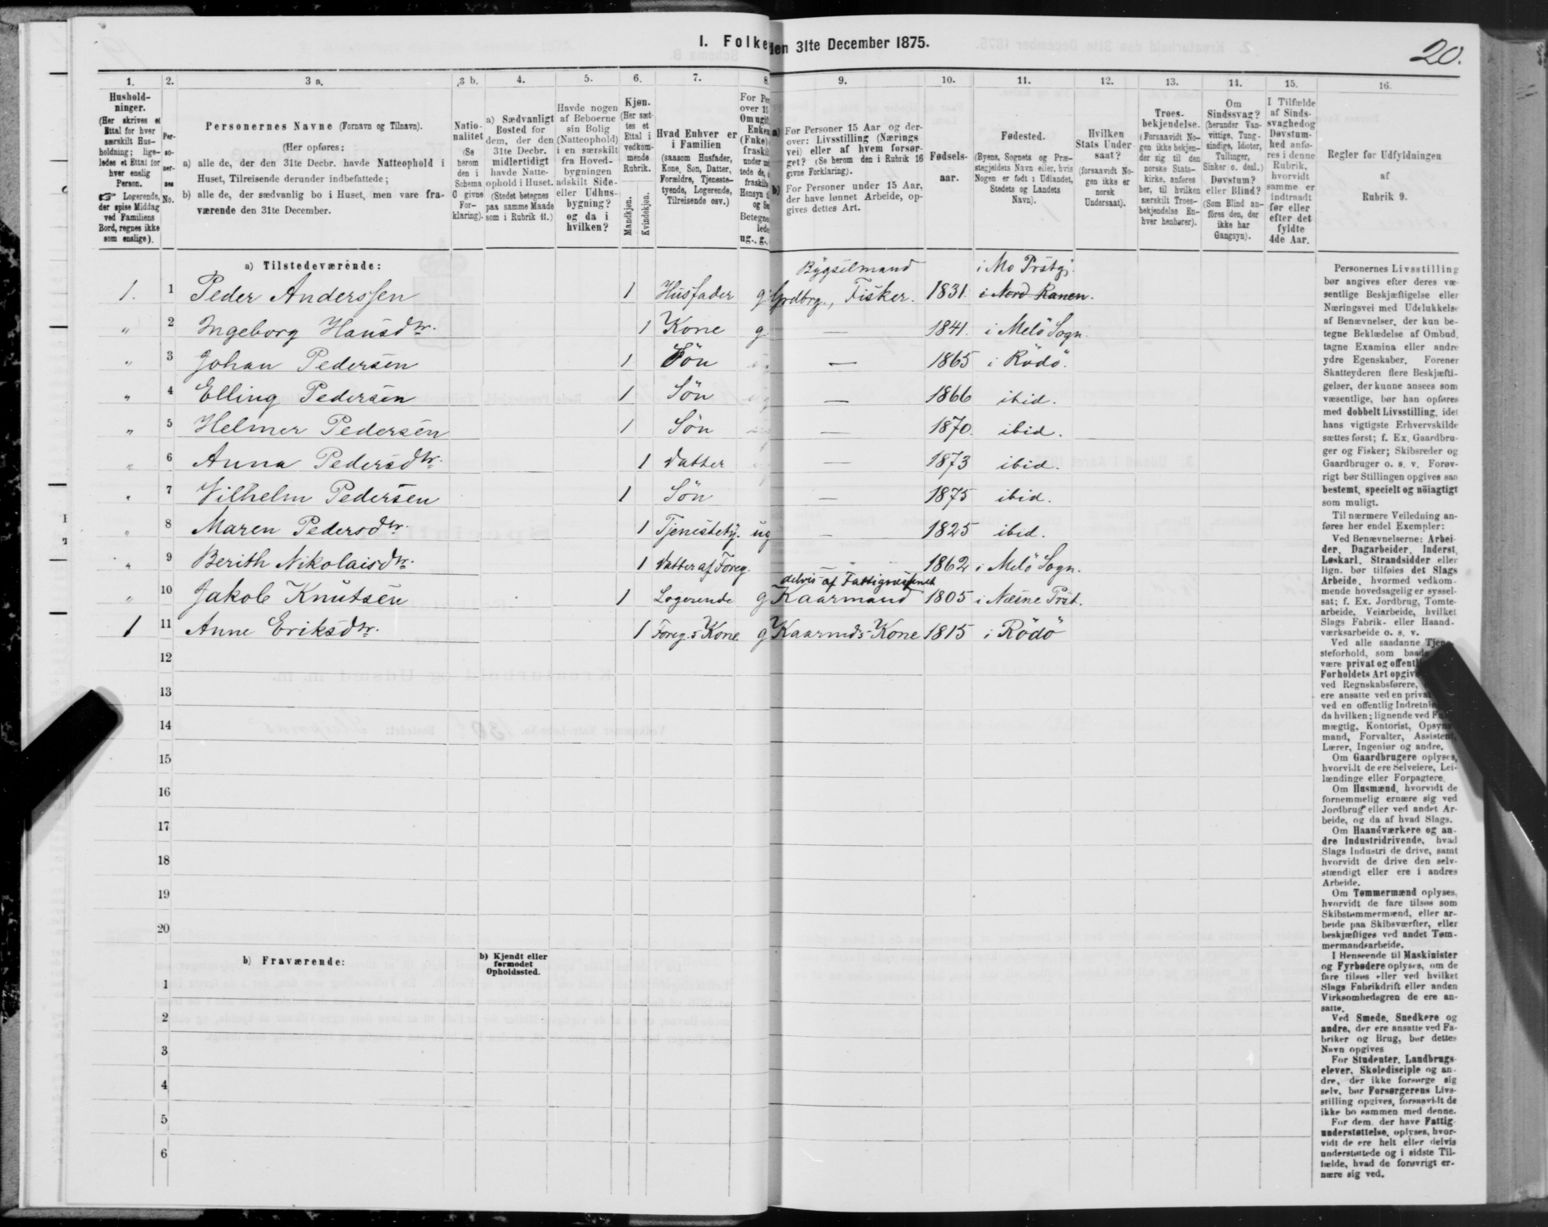 I. Folke
den 31te December 1875.
20.
1.
2.
3 a.
3 b.
4.
5.
6.
7.
8.
9.
10.
11.
12.
13.
14.
15.
16.
Hushold-
ninger.
(Her skrives et
Ettal for hver
særskilt Hus-
holdning; lige-
ledes et Ettal for
hver enslig
Person.
☞ Logerende,
der spise Middag
ved Familiens
Bord, regnes ikke
som enslige).
Per-
so-
ner-
nes
No.
Personernes Navne (Fornavn og Tilnavn).
(Her opføres:
a) alle de, der den 31te Decbr. havde Natteophold i
Huset, Tilreisende derunder indbefattede;
b) alle de, der sædvanlig bo i Huset, men vare fra-
værende den 31te December.
Natio-
nalitet
(Se
herom
den i
Schema
G givne
For-
klaring).
a) Sædvanligt
Bosted for
dem, der den
31te Decbr.
midlertidigt
havde Natte-
ophold i Huset.
(Stedet betegnes
paa samme Maade
som i Rubrik 11.)
Havde nogen
af Beboerne
sin Bolig
(Natteophold)
i en særskilt
fra Hoved-
bygningen
adskilt Side-
eller Udhus-
bygning?
og da i
hvilken?
Kjøn.
(Her sæt-
tes et
Ettal i
vedkom-
mende
Rubrik.
Mandkjøn.
Kvindekjøn.
Hvad Enhver er
i Familien
(saasom Husfader,
Kone, Søn, Datter,
Forældre, Tjeneste-
tyende, Logerende,
Tilreisende osv.)
For Per
over 15
Om ugift
Enke
(Fnke)
fraskil
under m
tede de,
fraskilt
Hensyn t
og Se
Betegne
lede
ug., g.,
a) For Personer 15 Aar og der-
over: Livsstilling (Nærings
vei) eller af hvem forsør-
get? (Se herom den i Rubrik 16
givne Forklaring).
b) For Personer under 15 Aar,
der have lønnet Arbeide, op-
gives dettes Art.
Fødsels-
aar.
Fødested.
(Byens, Sognets og Præ-
stegjeldets Navn eller, hvis
Nogen er født i Udlandet,
Stedets og Landets
Navn).
Hvilken
Stats Under
saat?
(forsaavidt No-
gen ikke er
norsk
Undersaat).
Troes-
bekjendelse.
(Forsaavidt No-
gen ikke bekjen-
der sig til den
norske Stats-
kirke, anføres
her, til hvilken
særskilt Troes-
bekjendelse En-
hver henhører).
Om
Sindssvag?
(herunder Van-
vittige, Tung-
sindige, Idioter,
Tullinger,
Sinker o. desl.)
Døvstum?
eller Blind?
(Som Blind an-
føres den, der
ikke har
Gangsyn).
I Tilfælde
af Sinds-
svaghed og
Døvstum-
hed anfø-
res i denne
Rubrik,
hvorvidt
samme er
indtraadt
før eller
efter det
fyldte
4de Aar.
Regler for Udfyldningen
af
Rubrik 9.
a) Tilstedeværende:
Bygselmand i Mo Prstgj.
1. 1 Peder Anderssen 1 Husfader g Grdbrg., Fisker. 1831 i Nord Ranen.
" 2 Ingeborg Hansdtr. 1 Kone g — 1841. i Melö Sogn.
" 3 Johan Pedersen 1 Søn — 1865 i Rödö.
" 4 Elling Pedersen 1 Søn — 1866 ibid.
" 5 Helmer Pedersen 1 Søn — 1870. ibid.
" 6 Anna Pedersdtr. 1 Datter — 1873 ibid.
" 7 Vilhelm Pedersen 1 Søn — 1875 ibid.
" 8 Maren Pedersdtr. 1 Tjenestety. ug — 1825 ibid.
" 9 Berith Nikolaisdtr. 1 Datter af Foreg. 1862 i Melö Sogn.
delvis af Fattigvæsenet
" 10 Jakob Knutsen 1 Logerende g Kaarmand 1805 i Næsne Prst.
1 11 Anne Eriksdtr. 1 Foreg.s Kone g Kaarmds Kone 1815 i Rödö
12
13
14
15
16
17
18
19
20
b) Fraværende:
b) Kjendt eller
formodet
Opholdssted.
1
2
3
4
5
6
Personernes Livsstilling
bør angives efter deres væ-
sentlige Beskjæftigelse eller
Næringsvei med Udelukkelse
af Benævnelser, der kun be-
tegne Beklædelse af Ombud,
tagne Examina eller andre
ydre Egenskaber. Forener
Skatteyderen flere Beskjæfti-
gelser, der kunne ansees som
væsentlige, bør han opføres
med dobbelt Livsstilling, idet
hans vigtigste Erhvervskilde
sættes først; f. Ex. Gaardbru-
ger og Fisker; Skibsreder og
Gaardbruger o. s. v. Forøv-
rigt bør Stillingen opgives saa
bestemt, specielt og nöiagtigt
som muligt.
Til nærmere Veiledning an-
føres her endel Exempler:
Ved Benævnelserne: Arbei-
der, Dagarbeider, Inderst,
Løskarl, Strandsidder eller
lign. bør tilføies det Slags
Arbeide, hvormed vedkom-
mende hovedsagelig er syssel-
sat; f. Ex. Jordbrug, Tomte-
arbeide, Veiarbeide, hvilket
Slags Fabrik- eller Haand-
værksarbeide o. s. v.
Ved alle saadanne Tjene-
steforhold, som baade
være privat og offentl
Forholdets Art opgiv
ved Regnskabsførere,
ere ansatte ved en priva
ved en offentlig Indretni
da hvilken; lignende ved F
mægtig, Kontorist, Opsyns
mand, Forvalter, Assistent,
Lærer, Ingeniør og andre.
Om Gaardbrugere oplyses,
hvorvidt de ere Selveiere, Lei-
lændinge eller Forpagtere.
Om Husmænd, hvorvidt de
fornemmelig ernære sig ved
Jordbrug eller ved andet Ar-
beide, og da af hvad Slags.
Om Haandværkere og an-
dre Industridrivende, hvad
Slags Industri de drive, samt
hvorvidt de drive den selv-
stændigt eller ere i andres
Arbeide.
Om Tømmermænd oplyses,
hvorvidt de fare tilsøs som
Skibstømmermænd, eller ar-
beide paa Skibsværfter, eller
beskjæftiges ved andet Tøm-
mermandsarbeide.
I Henseende til Maskinister
og Fyrbødere oplyses, om de
fare tilsøs eller ved hvilket
Slags Fabrikdrift eller anden
Virksomhedsgren de ere an-
satte.
Ved Smede, Snedkere og
andre, der ere ansatte ved Fa-
briker og Brug, bør dettes
Navn opgives
For Studenter, Landbrugs-
elever, Skoledisciple og an-
dre, der ikke forsørge sig
selv, bør Forsørgerens Livs-
stilling opgives, forsaavidt de
ikke bo sammen med denne.
For dem, der have Fattig-
understøttelse, oplyses, hvor-
vidt de ere helt eller delvis
understøttede og i sidste Til-
fælde, hvad de forøvrigt er-
nære sig ved.